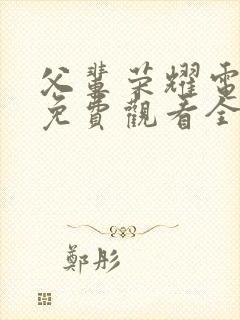 父輩荣耀電
免費觀看全
鄭彤